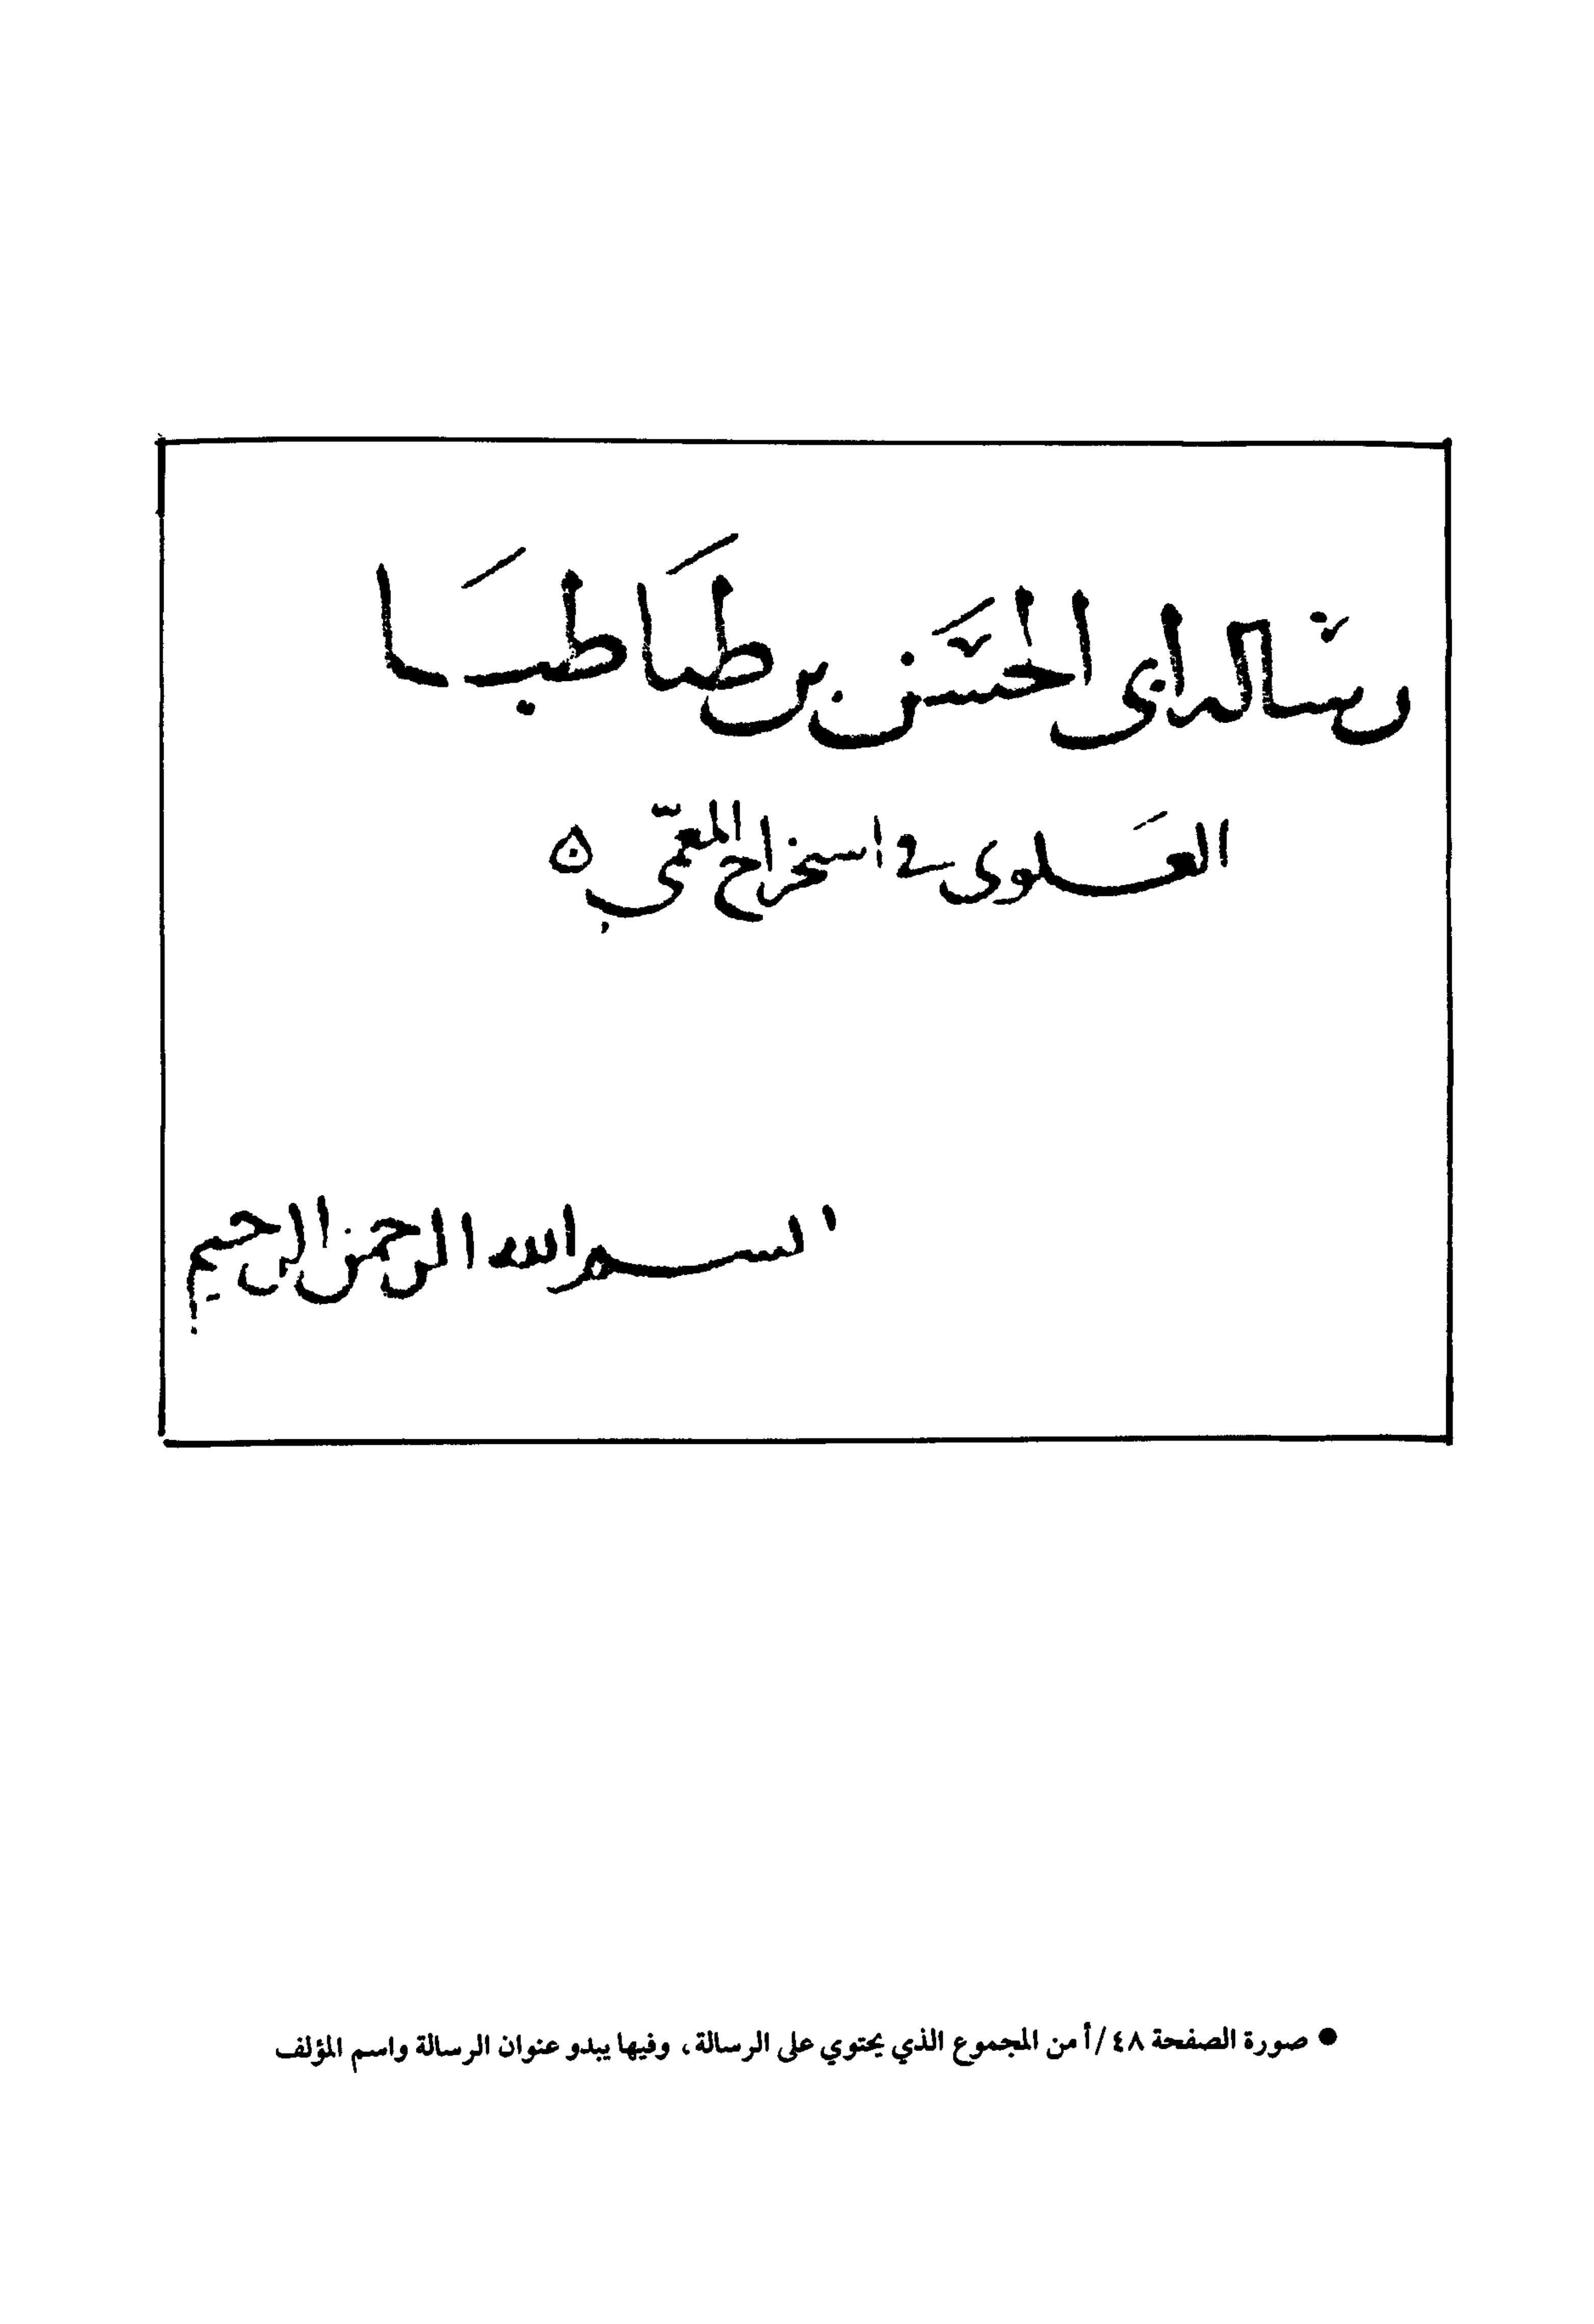 رساله ابى الحسن بن طباطبا
العلوى فى استخراج المعمى
بسم الله الرحمن الرحيم
● صورة الصفحة ٤٨/أ من المجموع الذي يحتوي على الرسالة، وفيها يبدو عنوان الرسالة واسم المؤلف